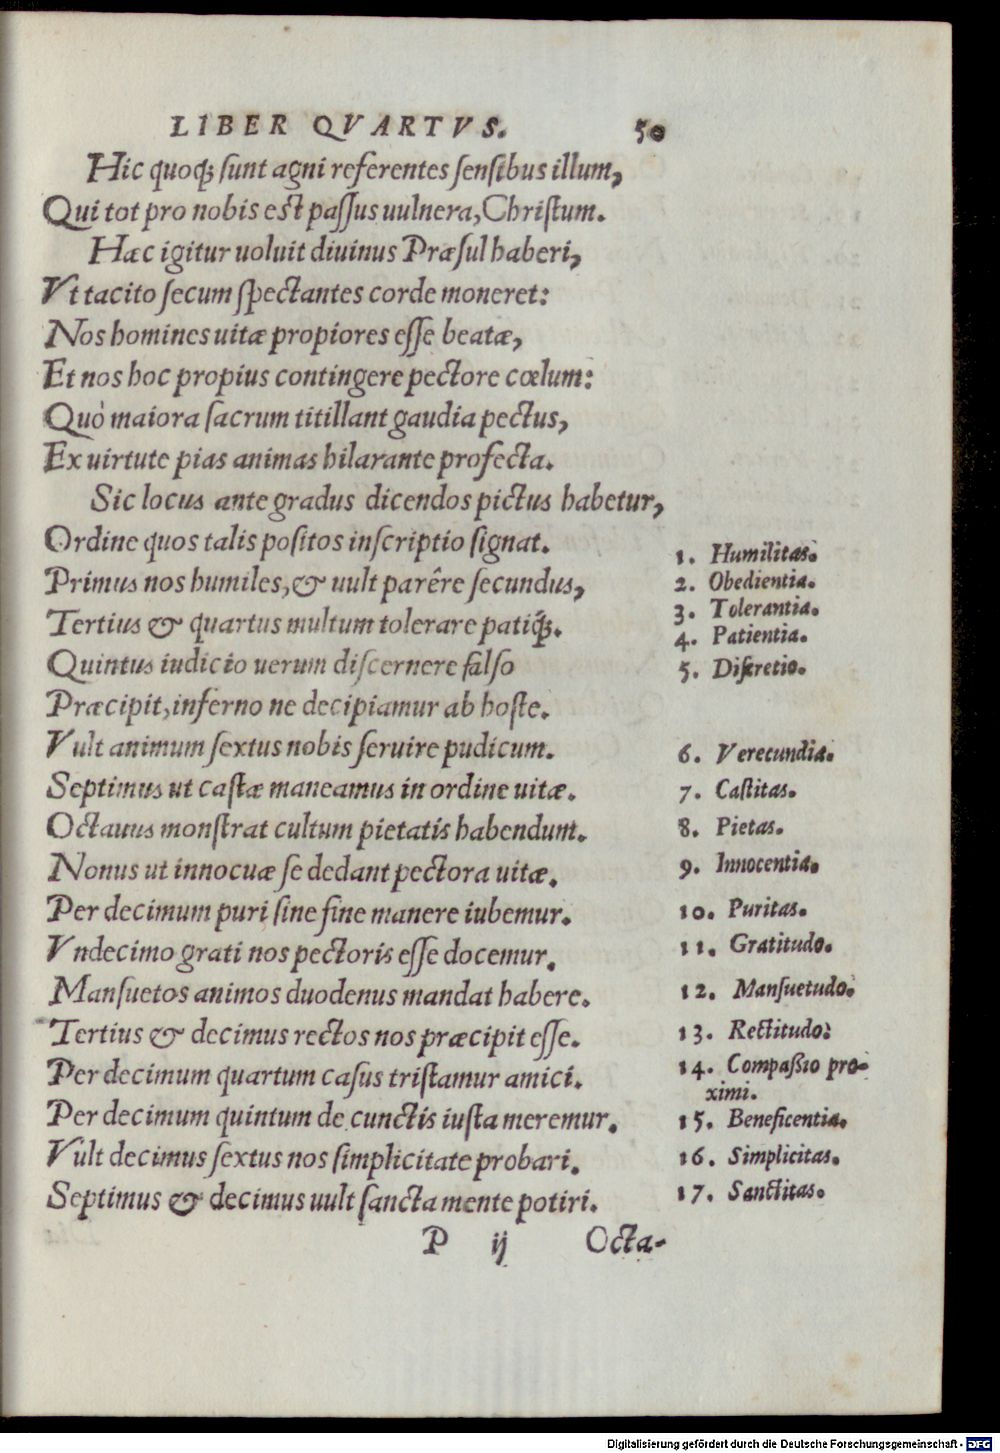 LIBER QVARTVS. 50
Hic quoq́; sunt agni referentes sensibus illum,
Qui tot pro nobis est passus uulnera, Christum.
Hæc igitur uoluit diuinus Præsul haberi,
Vt tacito secum spectantes corde moneret:
Nos homines uitæ propiores esse beatæ,
Et nos hoc propius contingere pectore cœlum:
Quò maiora sacrum titillant gaudia pectus,
Ex uirtute pias animas hilarante profecta.
Sic locus ante gradus dicendos pictus habetur,
Ordine quos talis positos inscriptio signat.
1. Humilitas.
Primus nos humiles, & uult parêre secundus,
2. Obedientia.
3. Tolerantia.
Tertius & quartus multum tolerare patiq́;.
4. Patientia.
Quintus iudicio uerum discernere falso
5. Discretio.
Præcipit, inferno ne decipiamur ab hoste.
Vult animum sextus nobis seruire pudicum.
6. Verecundia.
Septimus ut castæ maneamus in ordine uitæ.
7. Castitas.
Octauus monstrat cultum pietatis habendum.
8. Pietas.
Nonus ut innocuæ se dedant pectora uitæ.
9. Innocentia.
Per decimum puri sine fine manere iubemur.
10. Puritas.
Vndecimo grati nos pectoris esse docemur.
11. Gratitudo.
Mansuetos animos duodenus mandat habere.
12. Mansuetudo.
Tertius & decimus rectos nos præcipit esse.
13. Rectitudo:
Per decimum quartum casus tristamur amici.
14. Compaßio pro-
ximi.
Per decimum quintum de cunctis iusta meremur.
15. Beneficentia.
Vult decimus sextus nos simplicitate probari.
16. Simplicitas.
Septimus & decimus uult sancta mente potiri.
17. Sanctitas.
P ij Octa-
Digitalisierung gefördert durch die Deutsche Forschungsgemeinschaft - DFG